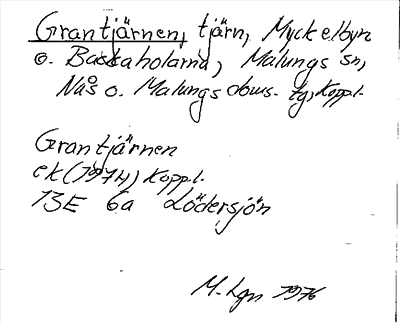 Grantjärnen, tjärn, Myckelbyn
o. Backaholarna, Malungs sn,
Nås o. Malungs doms. tg, Koppl.
Grantjärnen
ek (1974) Koppl.
13E 6a Lödersjön
M. Lgn 1976